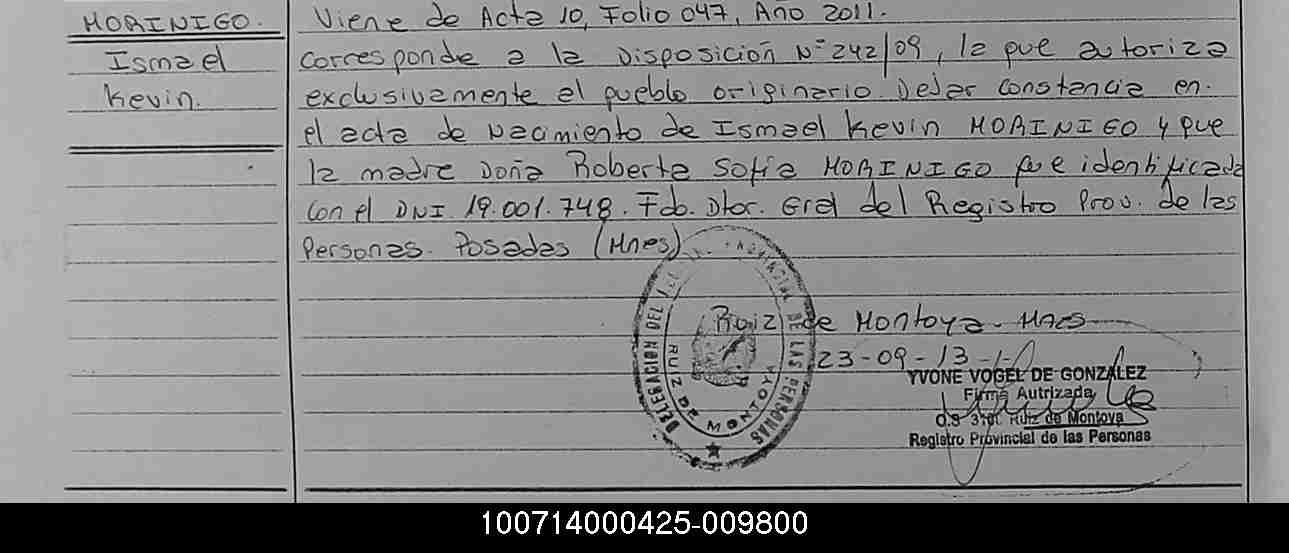 MORINIGO.
Ismael
Kevin.
Viene de Acta 10, Folio 047, Año 2011.
corresponde a la Disposición Nº 242/09, la que autoriza
exclusivamente al pueblo originario. Dejar constancia en
el acta de Nacimiento de Ismael Kevin MORINIGO y que
la madre Doña Roberta Sofía MORINIGO fue identificada
con el DNI 19.001.748. Fdo. Dtor. Gral del Registro Prov. de las
Personas. Posadas (Mnes)
Ruiz de Montoya - Mnes
23-09-13
DELEGACION DEL PROVINCIAL DE LAS PERSONAS
RUIZ DE MONTOYA
YVONE VOGEL DE GONZALEZ
Firma Autrizada
O.S Ruiz de Montoya
Registro Provincial de las Personas
100714000425-009800